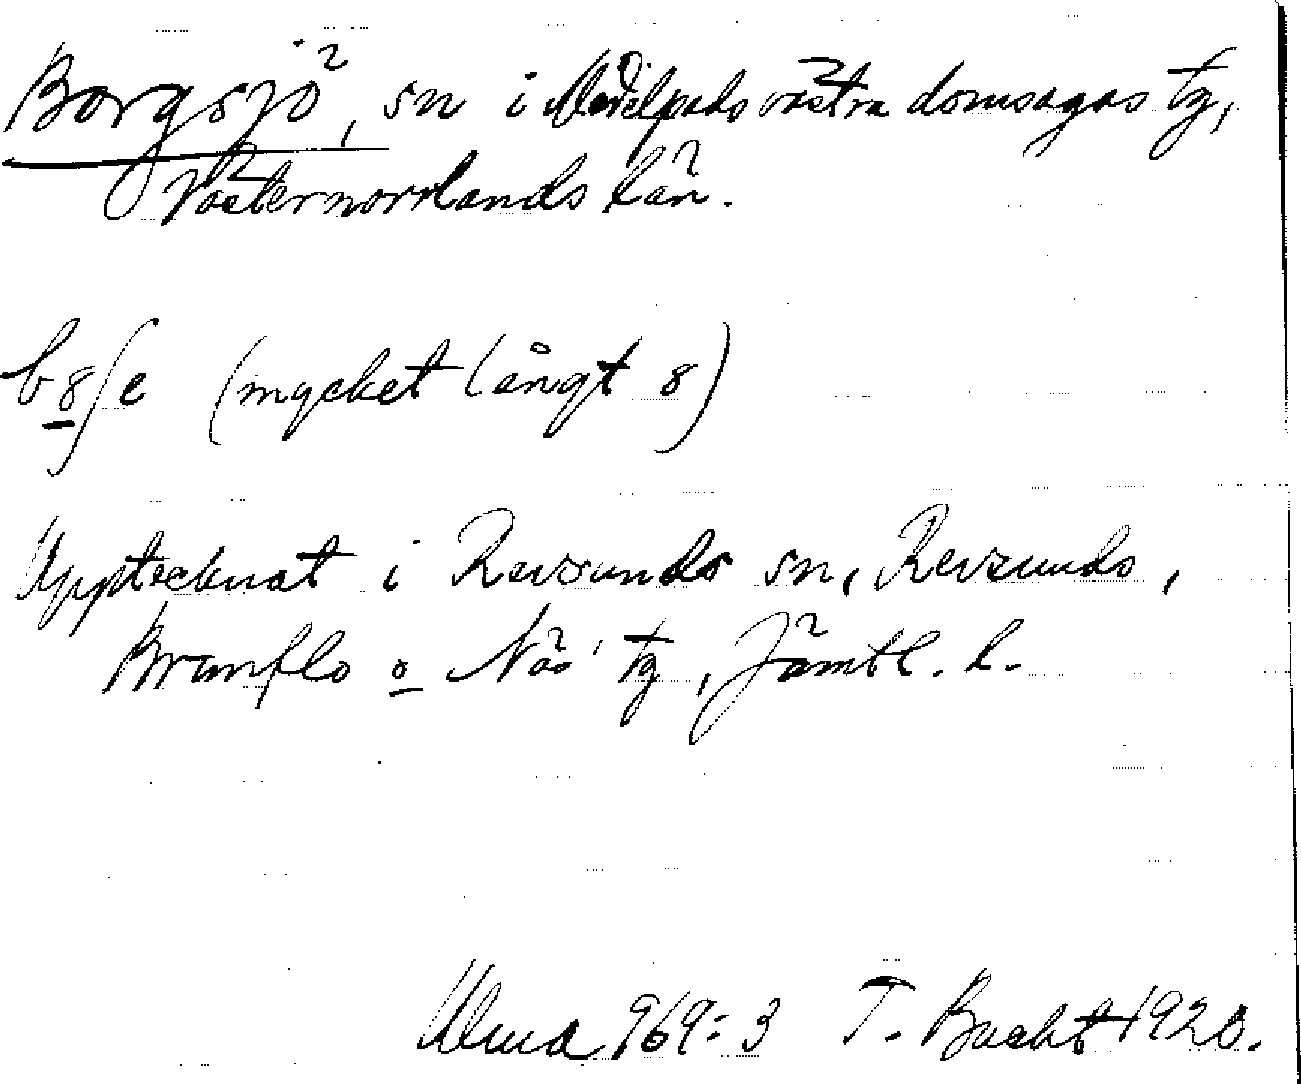 Borgsjö, sn i Medelpads västra domsagas tg,
Västernorrlands län.
b8ʃe (mycket långt 8)
Upptecknat i Revsunds sn, Revsunds,
Brunflo o Näs' tg, Jämtl. l.
Ulma 969:3 T. Bucht 1920.